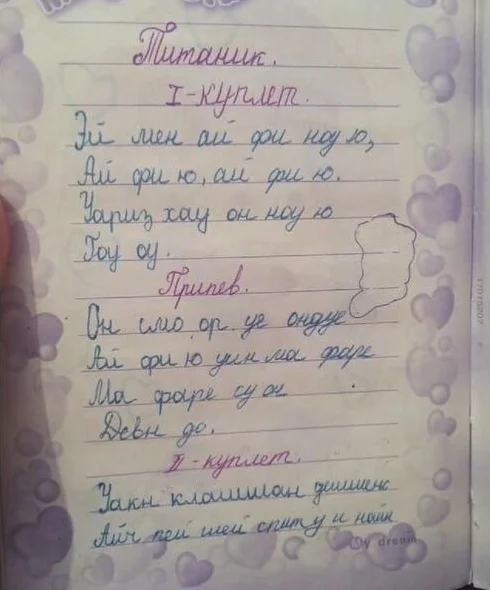 Титаник.
I-куплет.
Эй мен ай фи ноу ю,
Ай фи ю, ай фи ю.
Уариз хау он ноу ю
Гоу оу.
Припев.
Он смо ор уе ондуе
Ай фи ю уин ма фаре
Ма фаре су он
Девн до.
II-куплет.
Уакн клашиан
Айч пей шей спит у и найн
My dream
17010207